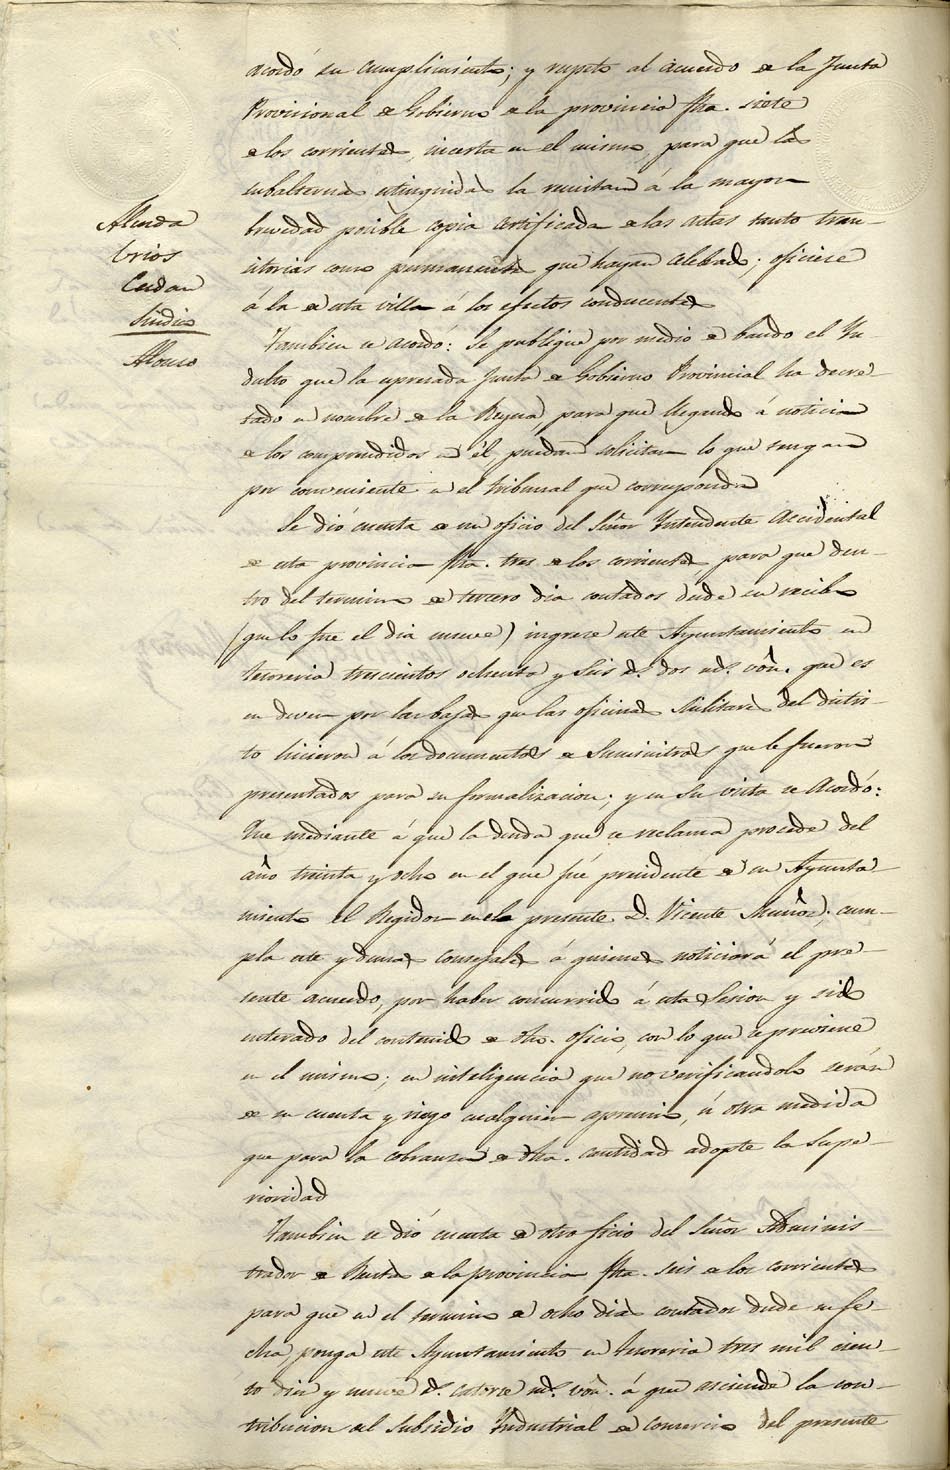 Alceda
Brios
Cerdan
Sindico
Alonso
acordó su cumplimiento; y respto al acuerdo de la Junta
Provisional de Gobierno de la provincia fha. siete
de los corrientes, incerta en el mismo, para que las
subalternas estinguidas la remitan á la mayor
brevedad posible copia certificada de las actas tanto tran-
sitorias como permanentes que hayan celebrado; oficiese
á la de esta villa á los efectos conducentes
Tambien se acordó: Se publique por medio de bando el Yn-
dulto que la espresada Junta de Gobierno Provincial ha decre-
tado en nombre de la Reyna, para que llegando á noticia
de los comprendidos en él, puedan solicitar lo que tengan
por conveniente en el tribunal que corresponda
Se dió cuenta de un oficio del Señor Yntendente Accidental
de esta provincia fha. tres de los corrientes, para que den-
tro del termino de tercero dia contados desde su recibo
(que lo fue el dia nueve) ingrese este Ayuntamiento en
tesoreria trescientos ochenta y seis rs. dos ms. von. que es
en dever por las bajas que las oficinas Militares del distri-
to hicieron á los documentos de Suministros que le fueron
presentados para su formalizacion; y en su vista se Acordó:
Que mediante á que la deuda que se reclama procede del
año treinta y ocho en el que fué presidente de su Ayunta-
miento el Regidor en el presente D. Vicente Muñoz, cum-
pla este y demas consejales á quienes noticiará el pre-
sente acuerdo, por haber concurrido á esta Sesion y sido
enterado del contenido de dho. oficio, con lo que se previene
en el mismo; en inteligencia que no verificandolo serán
de su cuenta y riesgo cualquier apremio, ú otra medida
que para la cobranza de dha. cantidad adopte la Supe-
rioridad
Tambien se dió cuenta de otro oficio del Señor Adminis-
trador de Rentas de la provincia fha. seis de los corrientes
para que en el termino de ocho dias contados desde su fe-
cha, ponga este Ayuntamiento en tesoreria tres mil cien-
to diez y nueve rs. catorce ms. von. á que asciende la con-
tribucion del Subsidio Yndustrial de Comercio del presente